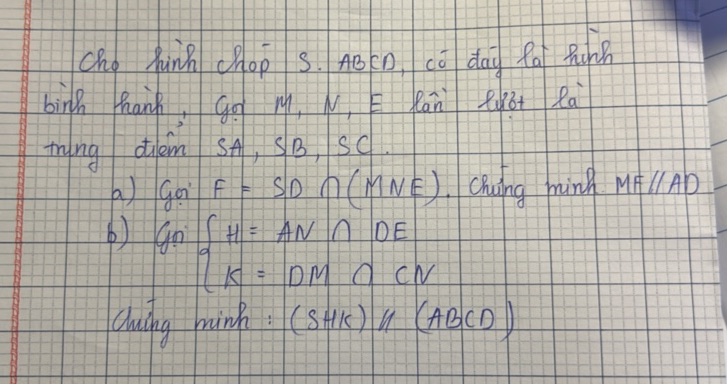 Cho hình chóp S. ABCD, có đáy là hình
bình hành, Gọi M, N, E lần lượt là
trung điểm SA, SB, SC.
a) Gọi F = SD ∩ (MNE). Chứng minh MF // AD
b) Gọi { H = AN ∩ DE
K = DM ∩ CN
Chứng minh : (SHK) // (ABCD)